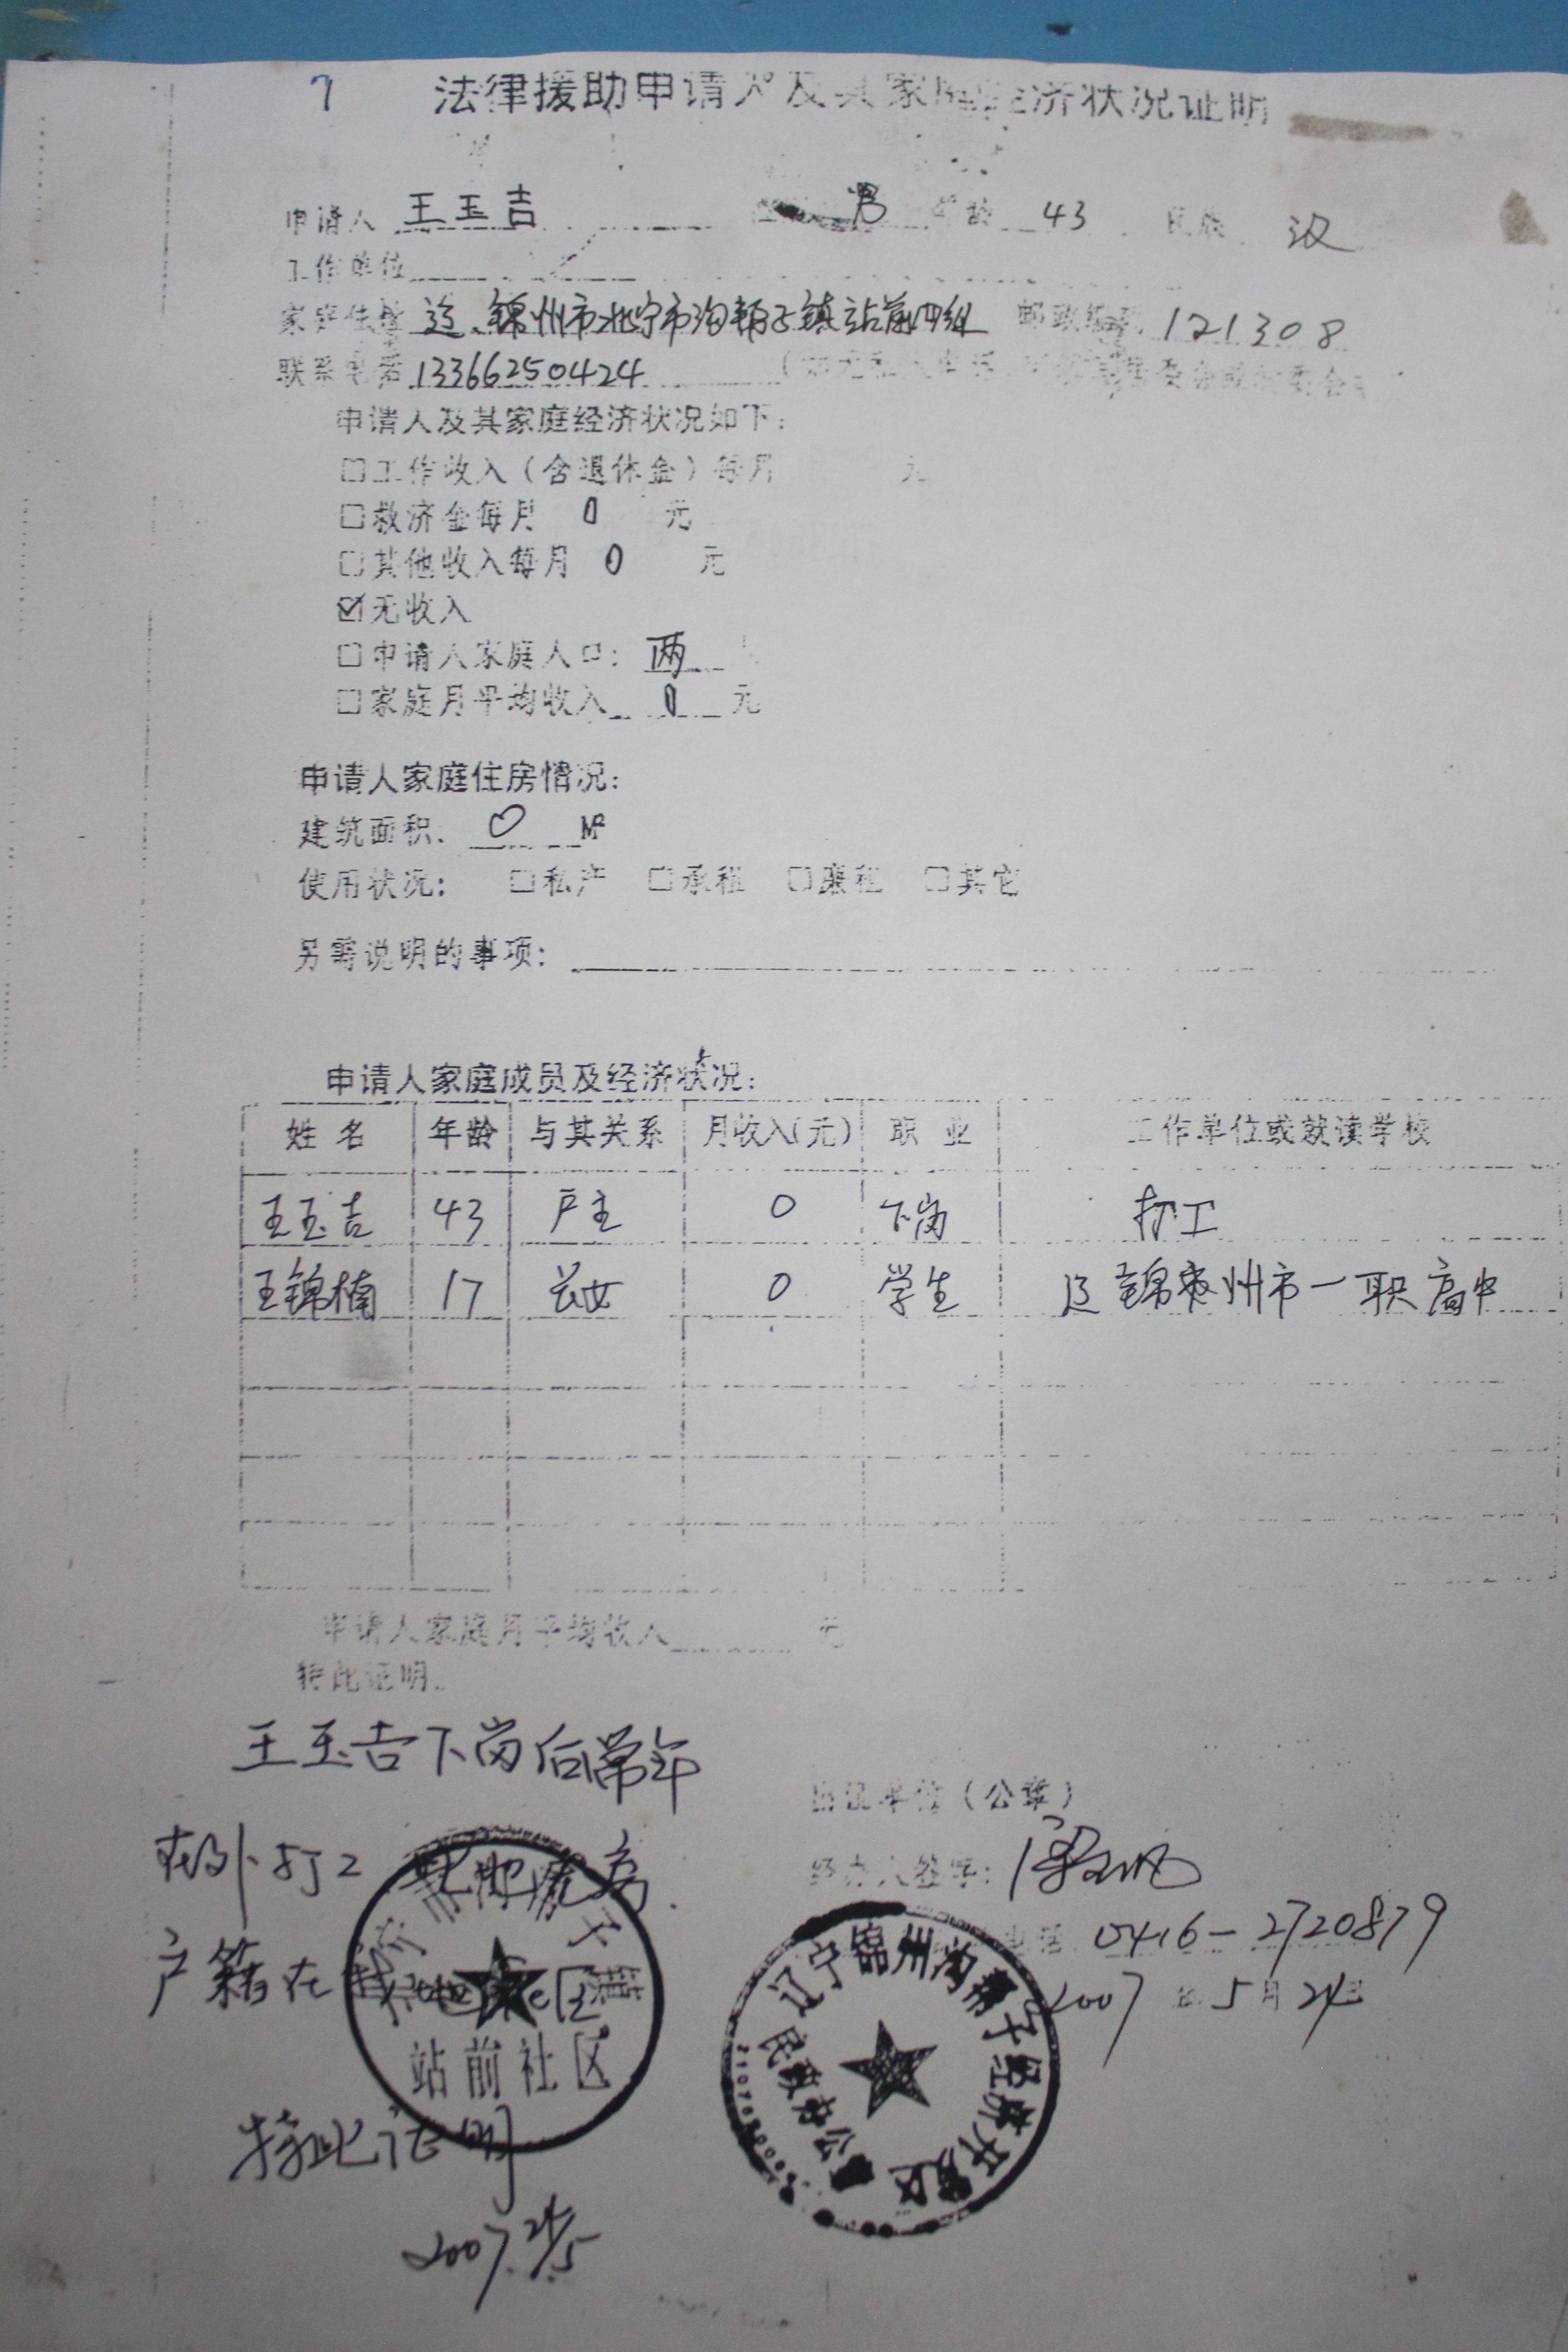 7 法律援助申请人及其家庭经济状况证明
申请人 王玉吉 男 年龄 43 民族 汉
工作单位
家庭住址 辽锦州市北宁市沟帮子镇站前四组 邮政编码 121308
联系电话 13366250424
申请人及其家庭经济状况如下：
□工作收入（含退休金）每月 元
□救济金每月 0 元
□其他收入每月 0 元
☑无收入
□申请人家庭人口：两
□家庭月平均收入 0 元
申请人家庭住房情况：
建筑面积、 0 M²
使用状况： □私产 □承租 □廉租 □其它
另需说明的事项：
申请人家庭成员及经济状况：
姓名 年龄 与其关系 月收入(元) 职业 工作单位或就读学校
王玉吉 43 户主 0 下岗 打工
王锦楠 17 长女 0 学生 辽锦州市一职高中
申请人家庭月平均收入 元
特此证明。
王玉吉下岗后常年
在外打工
户籍在
特此证明
2007.24/5
出证单位（公章）
经办人签字：
电话 0416-2720879
2007 年 5 月 24 日
站前社区
辽宁锦州沟帮子经济开发区
民政办公